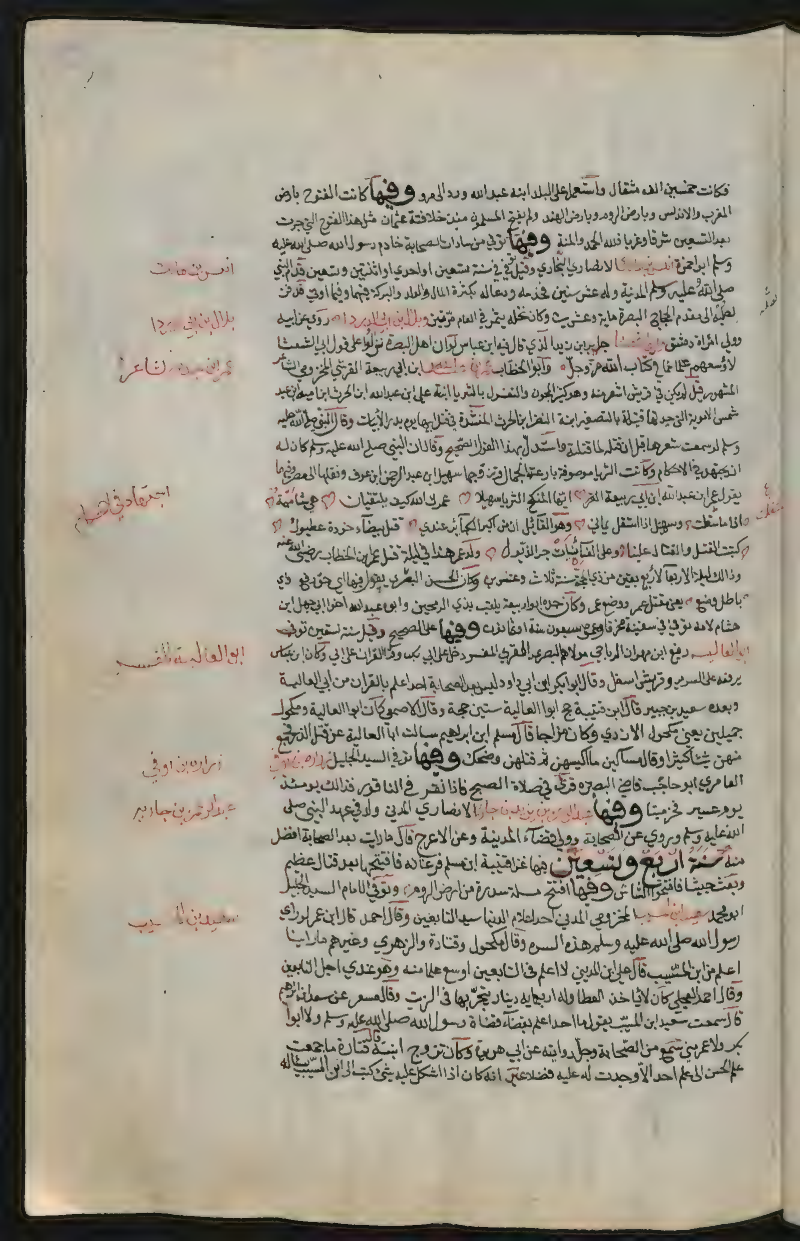 فكانت خمسين الف مثقال واستعمل على البلد ابنه عبد الله ورد الى مرو وفيها كانت الفتوح بارض
المغرب والاندلس وبارض الروم وبارض الهند ولم يفتح المسلمون منذ خلافة عثمان مثل هذا الفتوح التي جرت
بعد التسعين شرقا وغربا فلله الحمد والمنة وفيها توفي من سادات الصحابة خادم رسول الله صلى الله عليه
وسلم ابو حمزة انس بن مالك الانصاري النجاري وقيل توفي في سنة تسعين او احدى او اثنتين وتسعين قدم النبي
صلى الله عليه وسلم المدينة وله عشر سنين فخدمه ودعا له بكثرة المال والولد والبركة فيهما وفيما اوتي قد دفن
لصلبه الى مقدم الحجاج البصرة ماية وعشرين وكان نخله يثمر في العام مرتين وبلال بن ابي الدرداء روى عن ابيه
وولي امرأة دمشق جابر بن زيد الذي قال فيه ابن عباس لو ان اهل البصرة نزلوا على قول ابي الشعثا
لاوسعهم علما عما في كتاب الله عز وجل وابو الخطاب ابن ابي ربيعة القرشي المخزومي الشاعر
المشهور قيل لم يكن في قريش اشعر منه وهو كثير المجون والتغزل بالثريا ابنة علي ابن عبد الله ابن الحرث ابن امية ابن عبد
شمس الاموية التي جدها قتيلة بالتصغير ابنة النضر ابن الحرث المنشدة في قتل ابيها يوم بدر الابيات وقال النبي صلى الله عليه
وسلم لو سمعت شعرها قبل ان قتله لما قتلته فاستدل بهذا القول الصحيح وقال ان النبي صلى الله عليه وسلم كان له
ان يجتهد في الاحكام وكانت الثريا موصوفة بارعة الجمال فتزوجها سهيل ابن عبد الرحمن ابن عوف ونقلها الى مصر وفيهما
يقول عمر ابن عبد الله ابن ابي ربيعة ايها المنكح الثريا سهيلا عمرك الله كيف يلتقيان هي شامية
اذا ما استقلت وسهيل اذا استقل يماني وهو القائل ان من اكبر الكبائر عندي قتل بيضاء خردة عطبول
كتب القتل والقتال علينا وعلى الغانيات جر الذيول ولد عمر هذا في ليلة قتل عمر بن الخطاب رضي الله عنه
وذلك ليلة الاربعا لاربع بقين من ذي الحجة سنة ثلاث وعشرين وكان الحسن البصري يقول فيها اي حق رفع واي
باطل وضع يعني مقتل عمر ووضع عمر وكان جده ابو ربيعة يلقب بذي الرمحين وابو عبد الله اخو ابي جهل ابن
هشام لامه توفي في سفينة محترقا وعمره سبعون سنة او ثمانون وفيها على الصحيح وقيل سنة تسعين توفي
ابو العالية رفيع ابن مهران الرياحي مولاهم البصري المقري المفسر دخل على ابي بكر وقرأ القران على ابي وكان ابن عباس
يرفعه على السرير وقريش اسفل وقال ابو بكر ابن ابي داود ليس بعد الصحابة احد اعلم بالقران من ابي العالية
وبعده سعيد بن جبير قال ابن قتيبة حج ابو العالية ستين حجة وقال الاصمعي كان ابو العالية ومكحول
جميلين يعني مكحول الازدي وكان مزاجا قال مسلم ابن ابراهيم سالت ابا العالية عن قتل الذر فجمع
منهن شيئا كثيرا وقال مساكين ما اكيسهن ثم قتلهن وضحك وفيها توفي السيد الجليل زرارة بن اوفي
العامري ابو حاجب قاضي البصرة قرأ في صلاة الصبح فاذا نقر في الناقور فذلك يومئذ
يوم عسير فخر ميتا وفيها عبد الرحمن بن يزيد بن جارية الانصاري المدني ولد في عهد النبي صلى
الله عليه وسلم وروى عن الصحابة وولي قضاء المدينة وعن الاعرج قال ما رايت بعد الصحابة افضل
منه سنة اربع وتسعين فيها غزا قتيبة ابن مسلم فرغانه فافتتحها بعد قتال عظيم
وبعث جيشا فافتتحوا الشاش وفيها افتتح مسلمة سندرة من ارض الروم وتوفي الامام السيد الجليل
ابو محمد سعيد ابن المسيب المخزومي المدني احد اعلام الدنيا سيد التابعين وقال احمد كان ابن عمر لو راى
رسول الله صلى الله عليه وسلم هذا لسره وقال مكحول وقتادة والزهري وغيرهم ما راينا
اعلم من ابن المسيب قال علي ابن المديني لا اعلم في التابعين اوسع علما منه وهو عندي اجل التابعين
وقال احمد العجلي كان لا ياخذ العطا وله اربعماية دينار يتجر بها في الزيت وقال مسعر عن سعد ابن ابراهيم
قال سمعت سعيد ابن المسيب يقول ما احد اعلم بقضاء قضاه رسول الله صلى الله عليه وسلم ولا ابو
بكر ولا عمر مني سمع من الصحابة وجل روايته عن ابي هريرة وكان تزوج ابنته قال قتادة ما جمعت
علم الحسن الى علم احد الا وجدت له عليه فضلا غير انه كان اذا اشكل عليه شي كتب الى ابن المسيب يساله
انس بن مالك
بلال بن ابي الدردا
عمر ابن الشاعر
اجتهاد في
ابو العالية المفسر
زرارة بن اوفي
عبد الرحمن بن جارية
سعيد بن المسيب